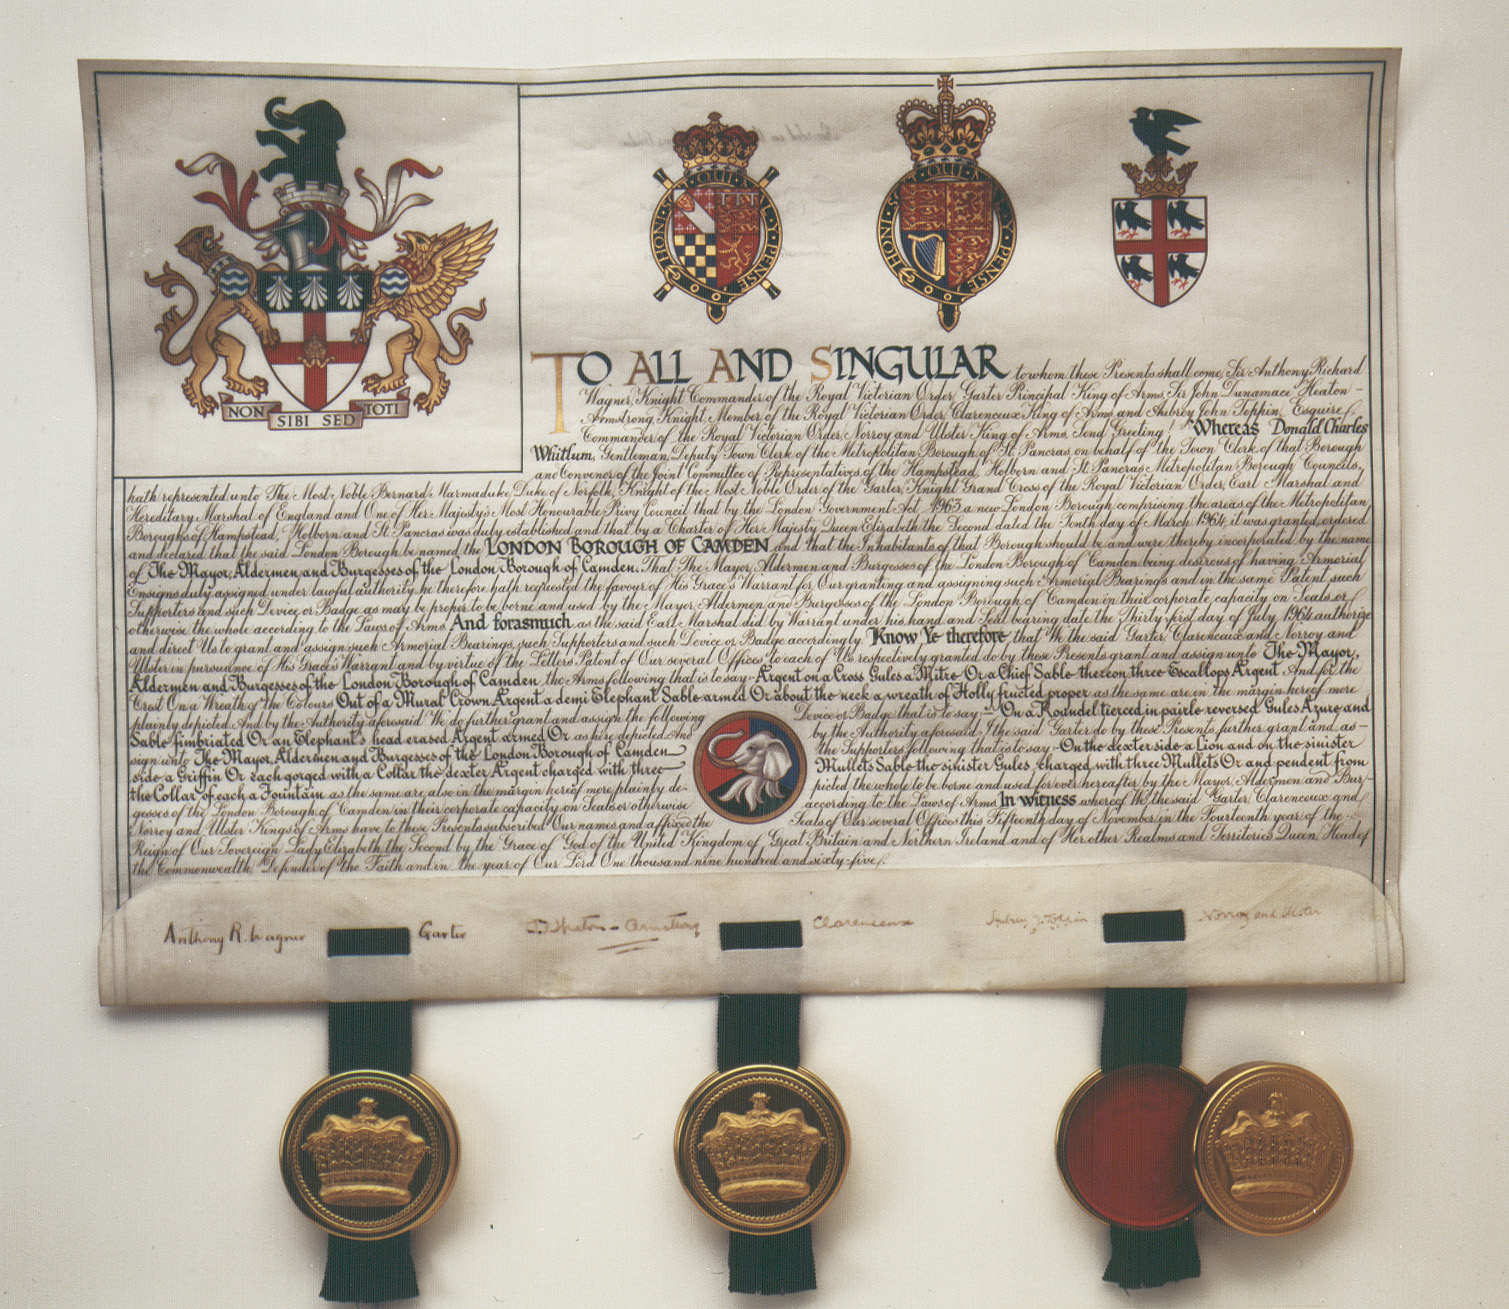 NON SIBI SED TOTI
HONI SOIT QUI MAL Y PENSE
HONI SOIT QUI MAL Y PENSE
TO ALL AND SINGULAR to whom these Presents shall come, Sir Anthony Richard
Wagner, Knight Commander of the Royal Victorian Order, Garter Principal King of Arms, Sir John Dunamace Heaton-
Armstrong, Knight, Member of the Royal Victorian Order, Clarenceux King of Arms and Aubrey John Toppin, Esquire,
Commander of the Royal Victorian Order, Norroy and Ulster King of Arms, Send Greeting! Whereas Donald Charles
Whitlum, Gentleman, Deputy Town Clerk of the Metropolitan Borough of St. Pancras, on behalf of the Town Clerk of that Borough
and Convenor of the Joint Committee of Representatives of the Hampstead, Holborn and St. Pancras Metropolitan Borough Councils,
hath represented unto The Most Noble Bernard Marmaduke, Duke of Norfolk, Knight of the Most Noble Order of the Garter, Knight Grand Cross of the Royal Victorian Order, Earl Marshal and
Hereditary Marshal of England and One of Her Majesty's Most Honourable Privy Council that by the London Government Act 1963 a new London Borough comprising the areas of the Metropolitan
Boroughs of Hampstead, Holborn and St. Pancras was duly established and that by a Charter of Her Majesty Queen Elizabeth the Second dated the Tenth day of March 1964, it was granted, ordered
and declared that the said London Borough be named the LONDON BOROUGH OF CAMDEN and that the Inhabitants of that Borough should be and were thereby incorporated by the name
of The Mayor, Aldermen and Burgesses of the London Borough of Camden. That The Mayor, Aldermen and Burgesses of the London Borough of Camden being desirous of having Armorial
Ensigns duly assigned under lawful authority he therefore hath requested the favour of His Grace's Warrant for Our granting and assigning such Armorial Bearings and in the same Patent such
Supporters and such Device or Badge as may be proper to be borne and used by the Mayor, Aldermen and Burgesses of the London Borough of Camden in their corporate capacity on Seals or
otherwise the whole according to the Laws of Arms. And forasmuch as the said Earl Marshal did by Warrant under his hand and Seal bearing date the Thirty first day of July 1964 authorize
and direct Us to grant and assign such Armorial Bearings, such Supporters and such Device or Badge accordingly. Know Ye therefore, that We the said Garter, Clarenceux and Norroy and
Ulster in pursuance of His Grace's Warrant and by virtue of the Letters Patent of Our several Offices to each of Us respectively granted do by these Presents grant and assign unto The Mayor,
Aldermen and Burgesses of the London Borough of Camden the Arms following that is to say:- Argent on a Cross Gules a Mitre Or a Chief Sable thereon three Escallops Argent And for the
Crest On a Wreath of the Colours Out of a Mural Crown Argent a demi Elephant Sable armed Or about the neck a wreath of Holly fructed proper as the same are in the margin hereof more
plainly depicted. And by the Authority aforesaid We do further grant and assign the following Device or Badge that is to say:- On a Roundel tierced in pairle reversed Gules Azure and
Sable fimbriated Or an Elephant's head erased Argent armed Or as here depicted. And by the Authority aforesaid I the said Garter do by these Presents further grant and as-
sign unto The Mayor, Aldermen and Burgesses of the London Borough of Camden the Supporters following that is to say:- On the dexter side a Lion and on the sinister
side a Griffin Or each gorged with a Collar the dexter Argent charged with three Mullets Sable the sinister Gules charged with three Mullets Or and pendent from
the Collar of each a Fountain as the same are also in the margin hereof more plainly de- picted the whole to be borne and used for ever hereafter by the Mayor, Aldermen and Bur-
gesses of the London Borough of Camden in their corporate capacity on Seals or otherwise according to the Laws of Arms. In witness whereof We the said Garter, Clarenceux and
Norroy and Ulster Kings of Arms have to these Presents subscribed Our names and affixed the Seals of Our several Offices this Fifteenth day of November in the Fourteenth year of the
Reign of Our Sovereign Lady Elizabeth the Second by the Grace of God of the United Kingdom of Great Britain and Northern Ireland and of Her other Realms and Territories Queen, Head of
the Commonwealth, Defender of the Faith and in the year of Our Lord One thousand nine hundred and sixty-five.
Anthony R. Wagner Garter J D Heaton-Armstrong Clarenceux Aubrey J. Toppin Norroy and Ulster